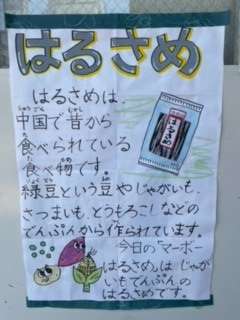 はるさめ
はるさめは、
中国で昔から
食べられている
食べ物です。
はるさめ
緑豆という豆やじゃがいも、
さつまいも、とうもろこしなどの
でんぷんから作られています。
今日の「マーボー
はるさめ」は じゃが
いもでんぷんの
はるさめです。